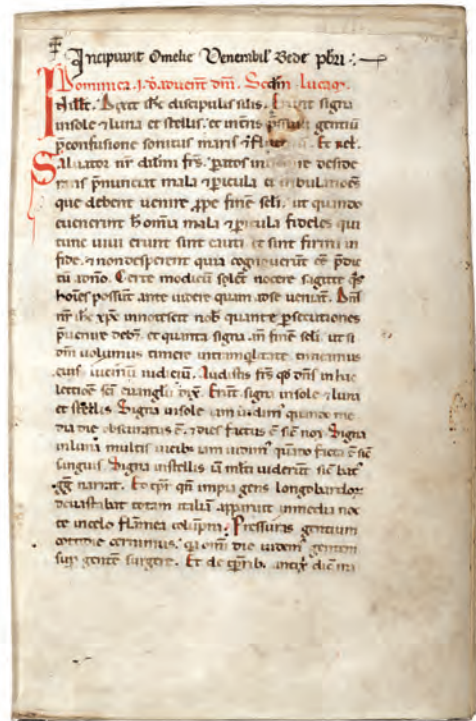 Incipiunt Omelie Venerabil' Bede pb̄ri :
Dominica .I. d̄ aduent dn̄i . Scdm̄ lucaꝫ
In illt. Dixit ih̄c discipulis suis. Erunt signa
in sole ⁊ luna et stellis. et in tr̄is gentiū
p̄ confusione sonitus maris ⁊ Et rel.
Saluator nr̄ dil̄mi fr̄s. patos inuenire deside
rans p̄nunciat mala ⁊ picula et tribulationes
que debent uenire ꝓpe finē sc̄li. ut quando
euenerint h̄ omīa mala ⁊ picula fideles qui
tunc uiui erunt sint cauti et sint firmi in
fide. ⁊ non desperent quia cognouerunt ēē p̄dic
tū a dn̄o. Certe modicū solent nocere sagitte q̄s
hoīes possūt ante uidere quam ad se ueniāt. Dn̄s
nr̄ ih̄c xp̄c innotescit nob̄ quante ꝑsecutiones
p̄uenire debēt et quanta signa. in finē sc̄li. ut si
dm̄ uolumus timere in tranq̄llitate timeamus
eius iudiciū. Audistis fr̄s qd̄ dn̄s in hac
lectiōe sc̄i euangl̄ii dix̄. Erūt signa in sole ⁊ luna
et stellis. Signa in sole iam uidim' quando me
dia die obscuratus ē. ⁊ dies factus ē sic nox. Signa
in luna multis uicib; iam uidim' quādo facta ē sic
sanguis. Signa in stellis iā ml̄ti uiderūt sic bat'
gḡ narrat. Et qn̄ impia gens longobardoꝝ
deuastabat totam italiā apparuit in media noc
te in celo flāmea colūpna. Pressuras gentium
cottidie cernimus. qa omī die uidem' gentem
suꝑ gentē surgere. Et de antiq̄